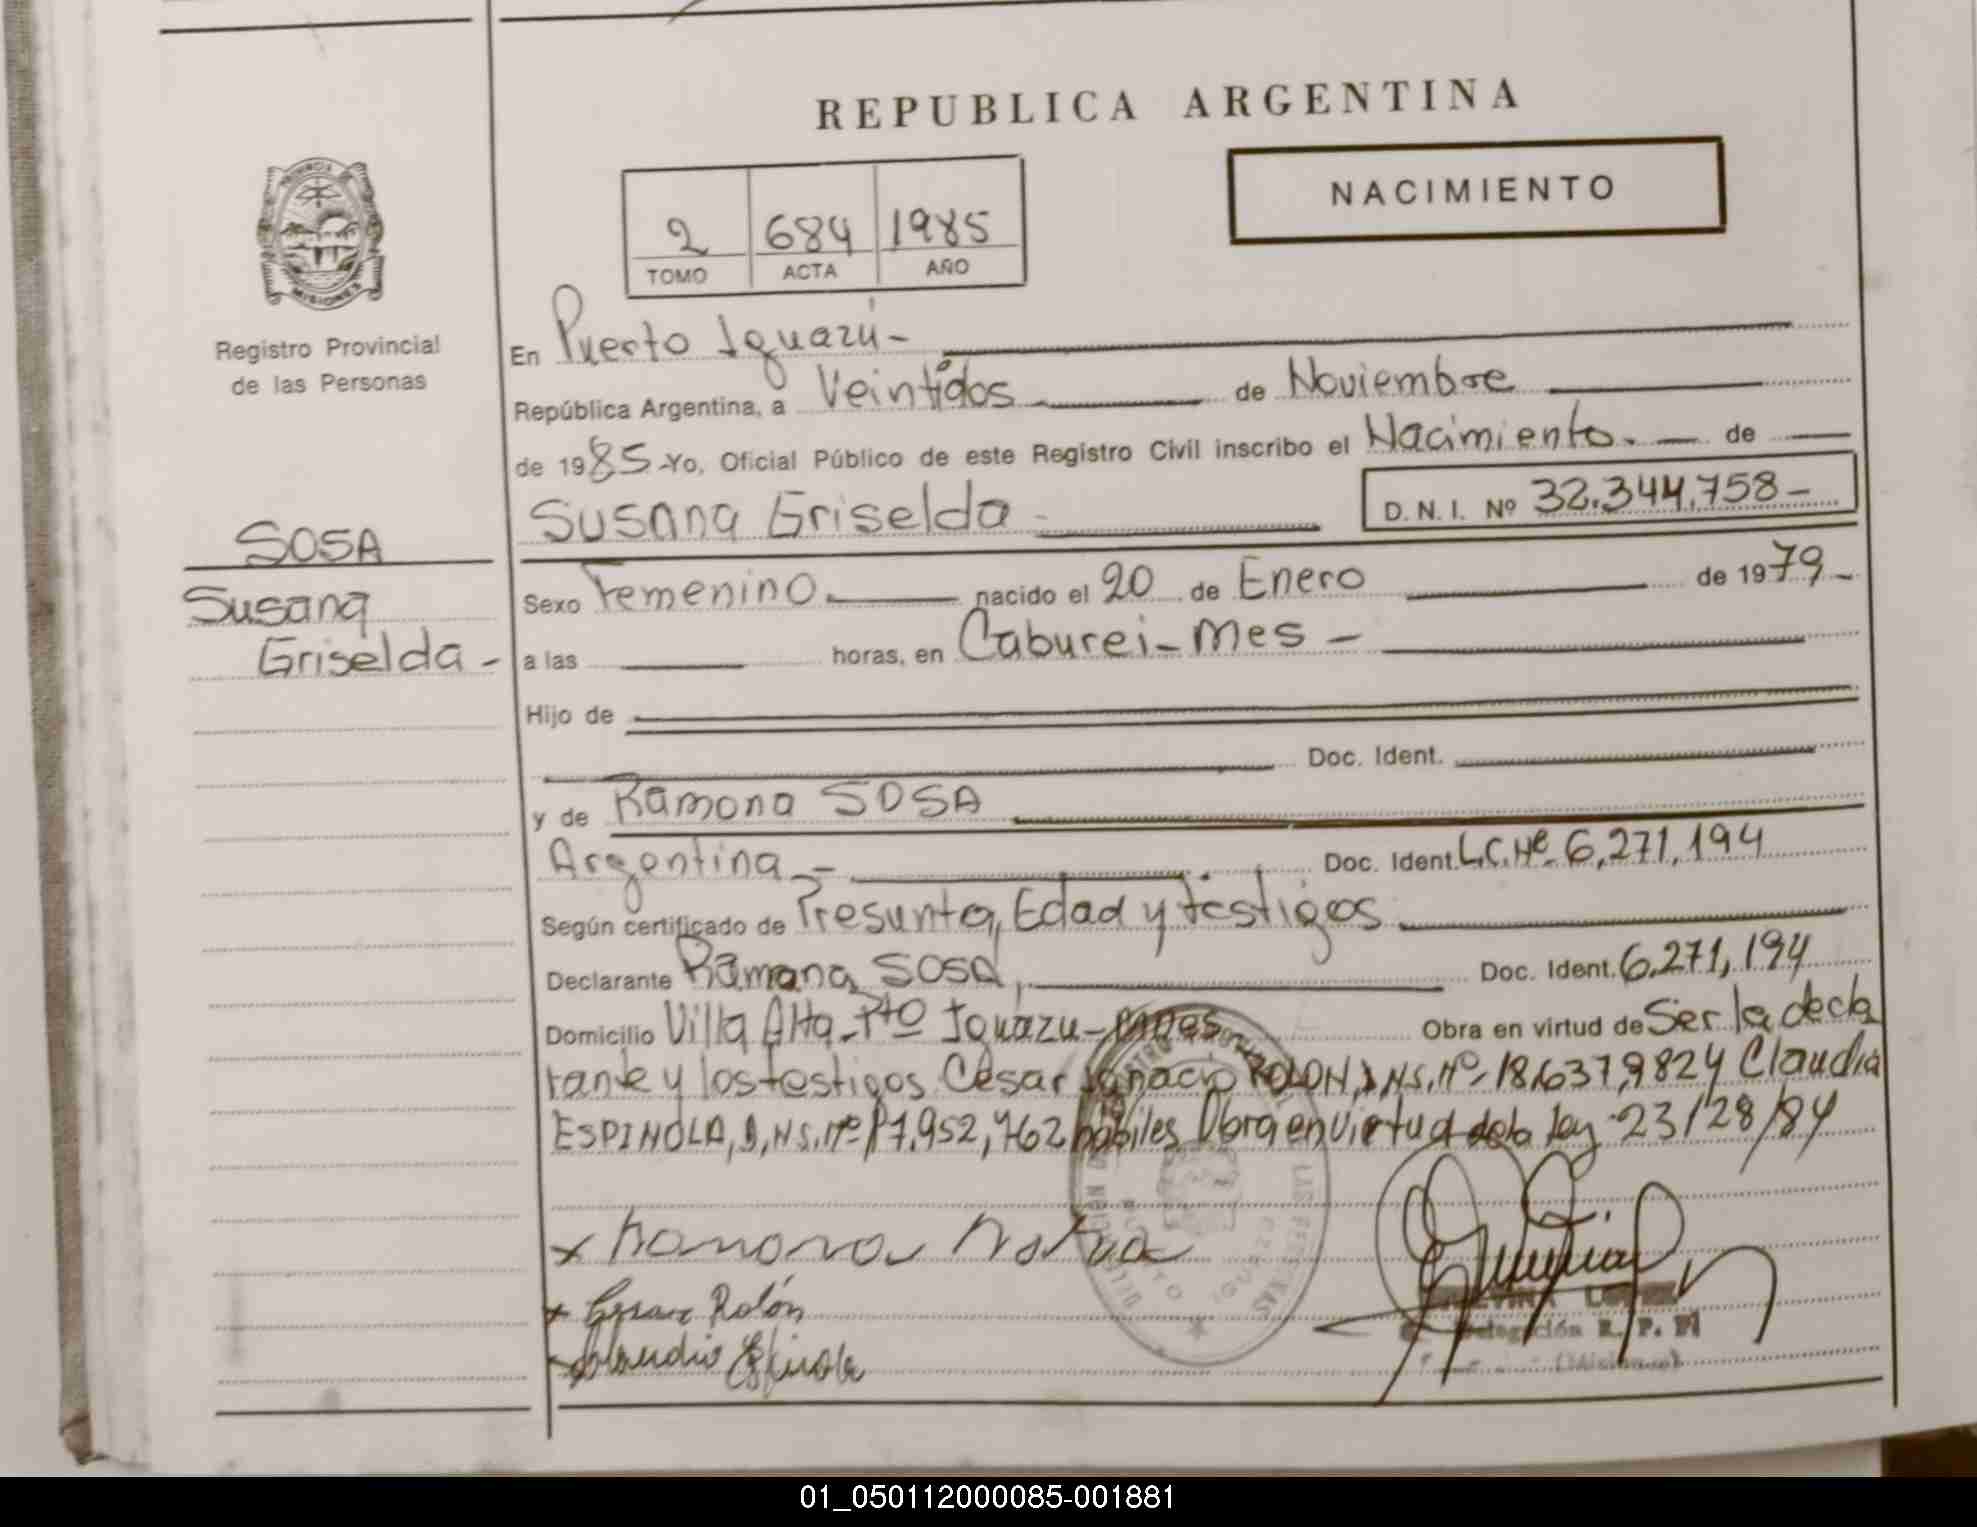 REPUBLICA ARGENTINA
NACIMIENTO
2 684 1985
TOMO ACTA AÑO
PROVINCIA DE
MISIONES
Registro Provincial
de las Personas
SOSA
Susana
Griselda -
En Puerto Iguazú -
República Argentina, a Veintidos de Noviembre
de 1985 - Yo, Oficial Público de este Registro Civil inscribo el Nacimiento. — de
Susana Griselda - D. N. I. Nº 32.344.758 -
Sexo Femenino. nacido el 20 de Enero de 1979 -
a las horas, en Caburei - Mes -
Hijo de
Doc. Ident.
y de Ramona SOSA
Argentina - Doc. Ident. L.C. Nº 6,271,194
Según certificado de Presunta, Edad y testigos
Declarante Ramona SOSA, Doc. Ident. 6.271,194
Domicilio Villa Alta - Pto Iguazu - Mnes Obra en virtud de Ser la decla
rante y los testigos Cesar Ignacio ROLON, D,NS, Nº 18,637,982 y Claudia
ESPINOLA, D,NS, Nº 17,952,762 habiles Obra en virtud de la ley 23/28/84
x Ramona
x Cesar Rolón
x Claudio Espinola
LOPEZ
Delegación R. P. P.
(Misiones)
01_050112000085-001881